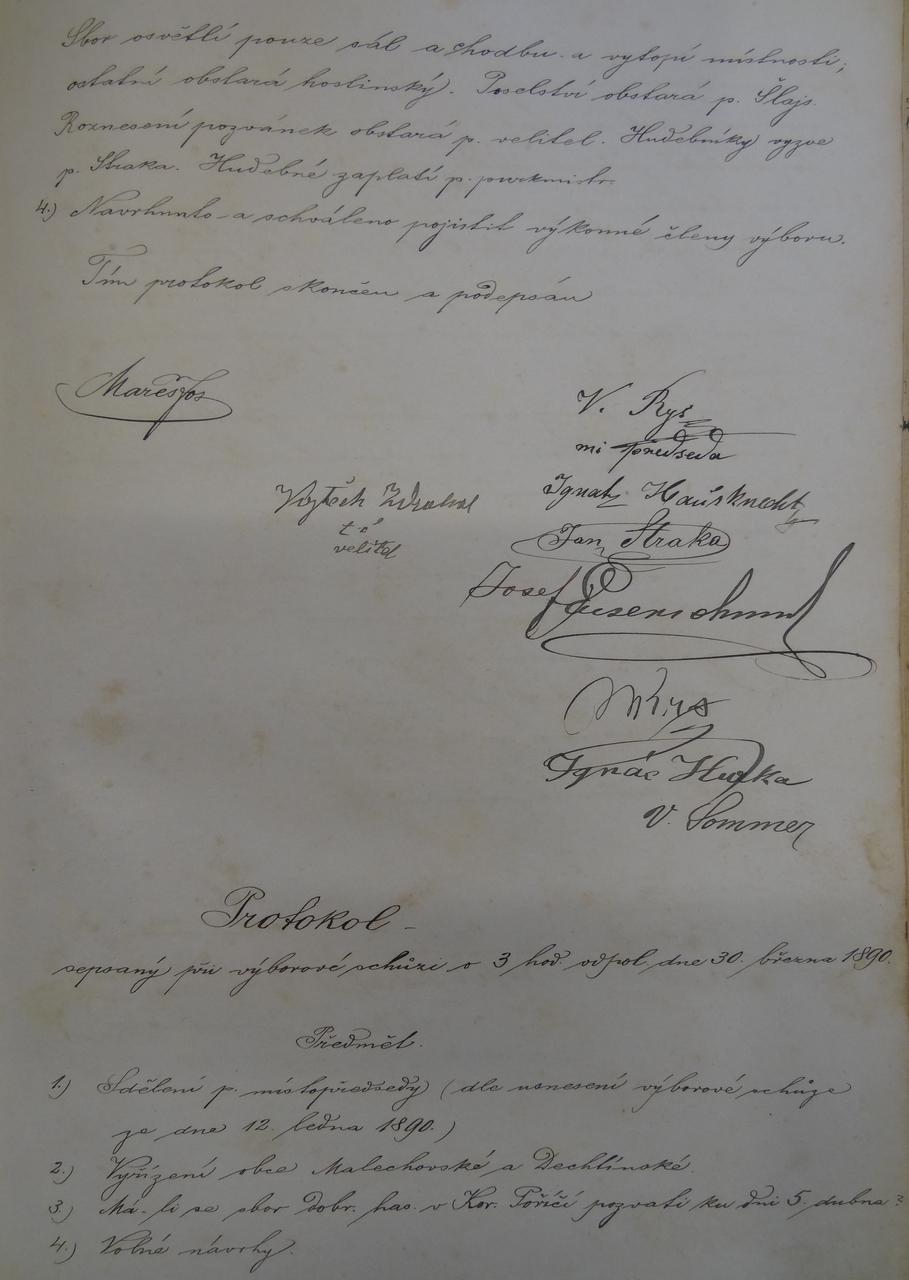 Sbor osvětlí pouze sál a chodbu a vytopí místnosti;
ostatní obstará hostinský. Poselství obstará p. Šlajs.
Roznesení pozvánek obstará p. velitel. Hudebníky vyzve
p. Straka. Hudebné zaplatí p. purkmistr.
4.) Navrhnuto a schváleno pojistit výkonné členy výboru.
Tím protokol skončen a podepsán
Mareš Jos
V. Ryš
mi předseda
Ignatz Hausknecht
Vojtěch
t č
velitel
Jan Straka
Josef
Ignác
V. Sommer
Protokol
sepsaný při výborové schůzi o 3 hod. odpol. dne 30. března 1890.
Předmět.
1.) Sdělení p. místopředsedy (dle usnesení výborové schůze
ze dne 12. ledna 1890.)
2.) Vyřízení obce Malechovské a Dechtínské.
3.) Má-li se sbor dobr. has. v Kor. Poříčí pozvati ku dni 5. dubna?
4.) Volné návrhy.